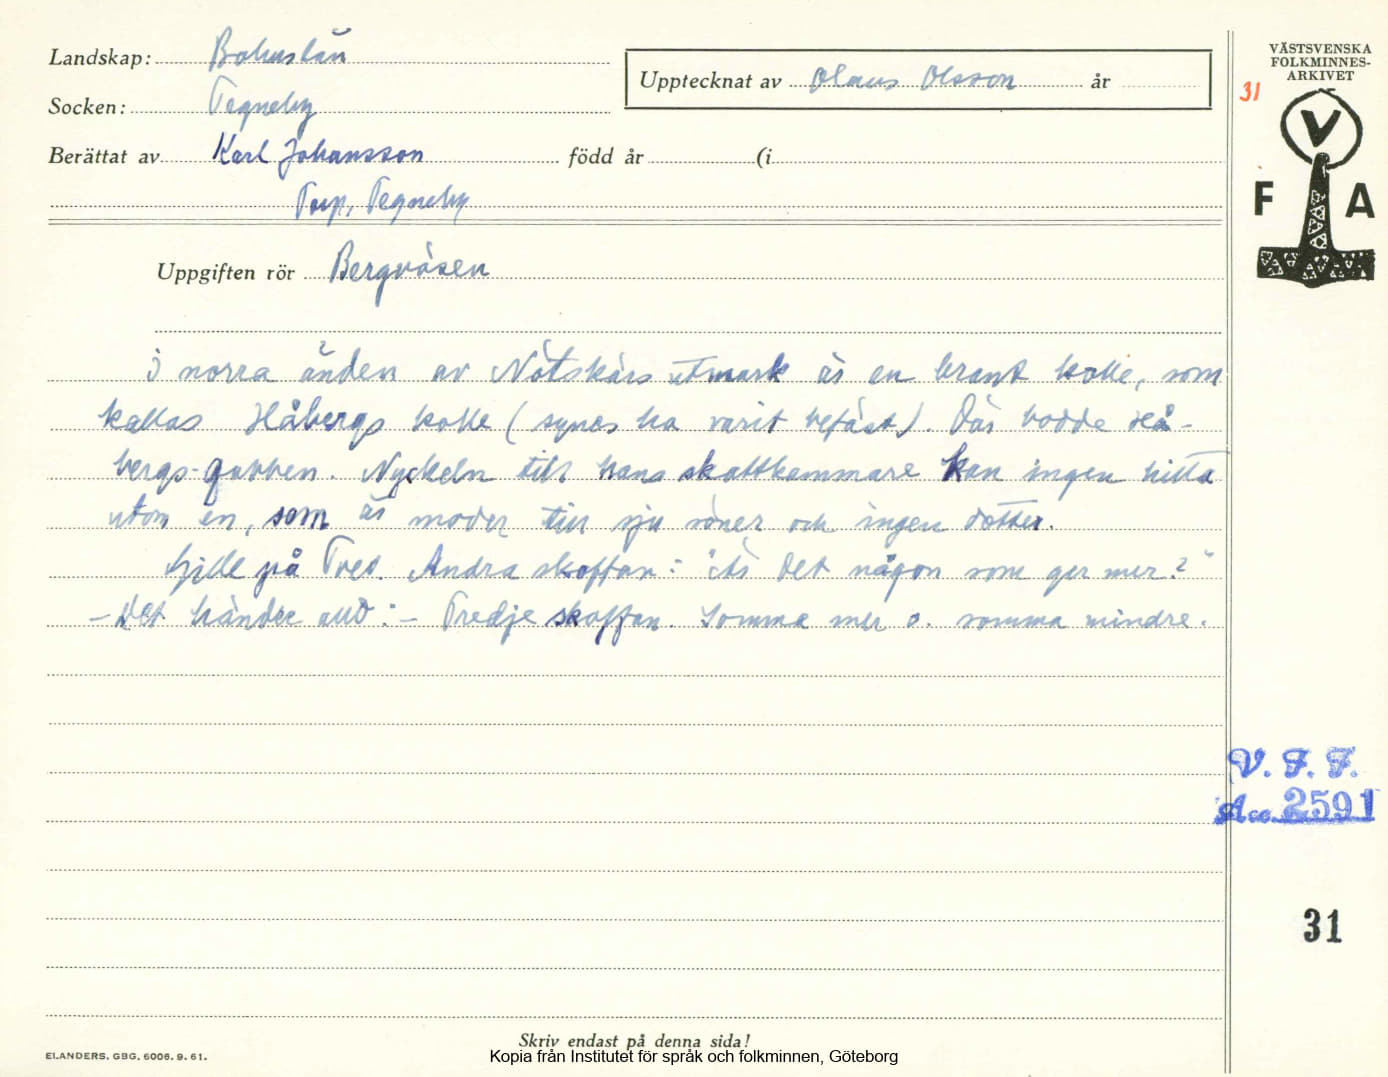 Landskap: Bohuslän
Socken: Tegneby
Upptecknat av Olaus Olsson år
Berättat av Karl Johansson född år (i
Torp, Tegneby
Uppgiften rör Bergväsen
VÄSTSVENSKA
FOLKMINNES-
ARKIVET
31
V
F A
I norra änden av Nötskärs utmark är en brant kolle, som
kallas Håbergs kolle (synes ha varit befäst). Där bodde Hå-
bergs-gubben. Nyckeln till hans skattkammare kan ingen hitta
utom en, som är moder till sju söner och ingen dotter.
på Tved. Andra skoffan: "Är det någon som ger mer?"
- Det händer allt: - Tredje skoffan. Somma mer o. somma mindre.
V. F. F.
Acc. 2591
31
Skriv endast på denna sida!
ELANDERS. GBG. 6006. 9. 61.
Kopia från Institutet för språk och folkminnen, Göteborg